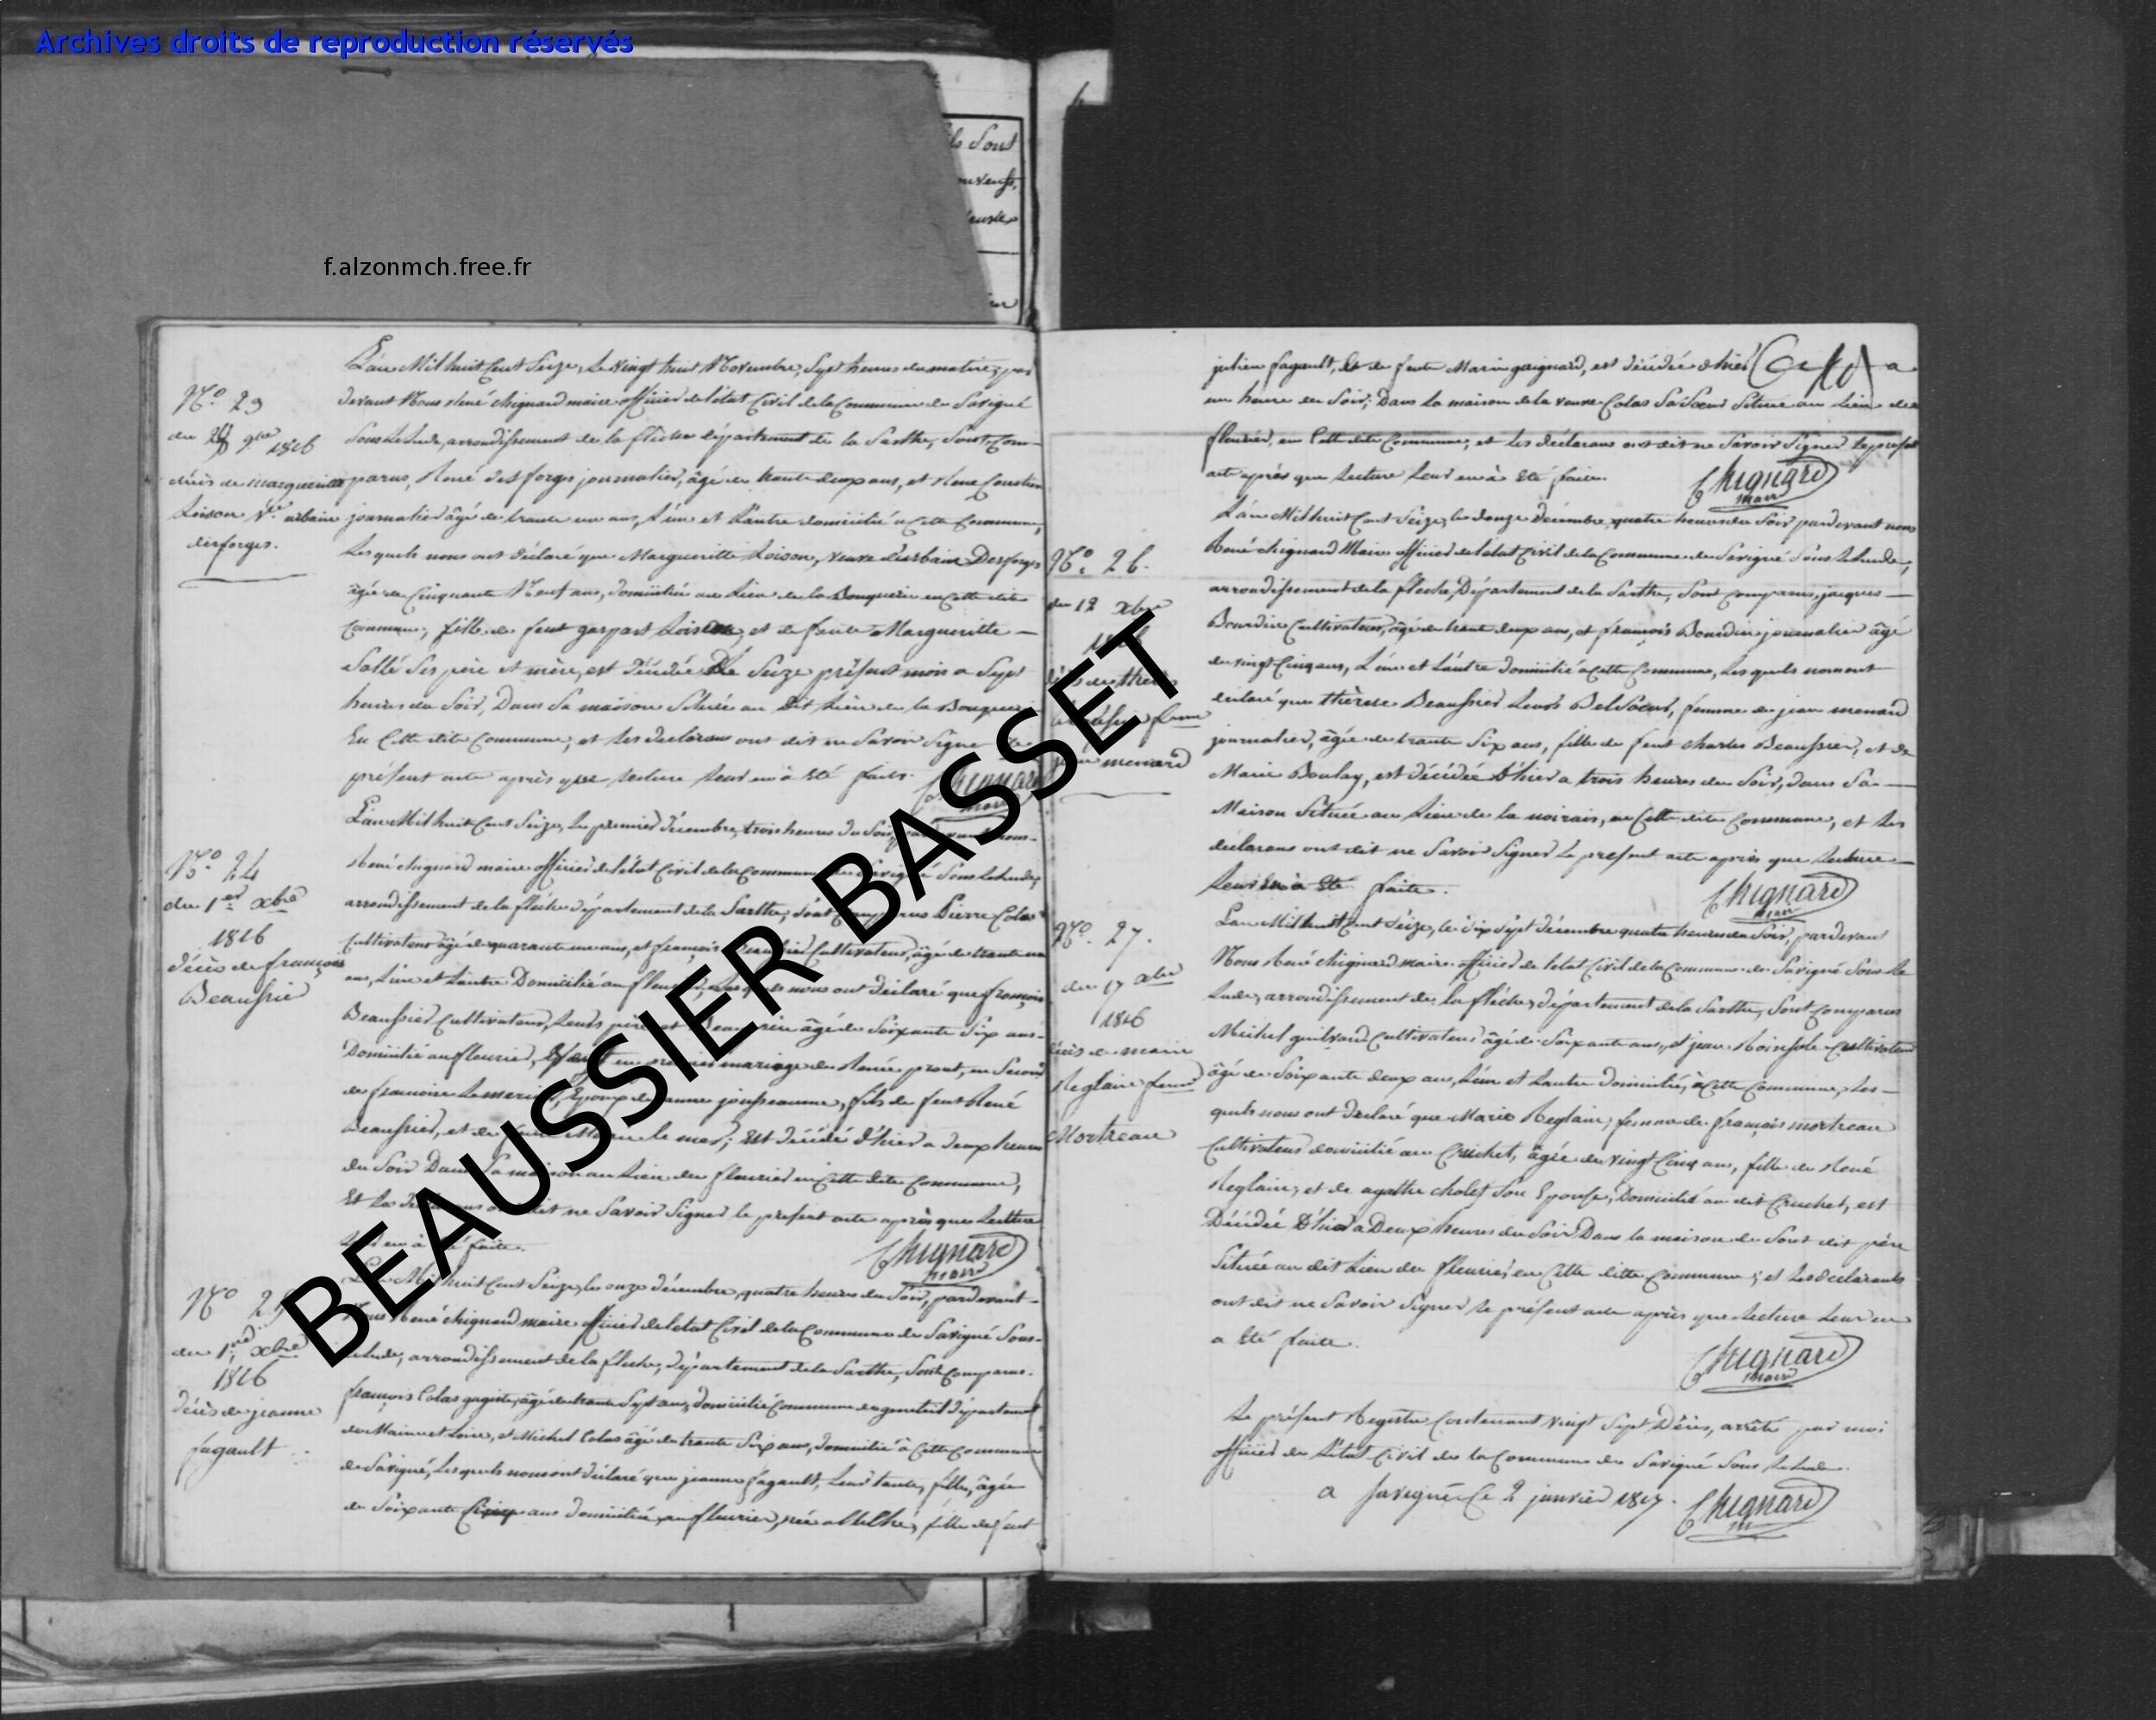 Archives droits de reproduction réservés
f.alzonmch.free.fr
BEAUSSIER BASSET
ils Sont
L'an Mil huit Cent Seize, Le vingt huit Novembre, Sept heures du matin, par
devant Nous René chignard maire officier de l'état Civil de la Commune de Savigné
Sous Le Lude, arrondissement de la flèche département de la Sarthe, Sont Com-
parus, René desforges journalier, âgé de trente deux ans, et René
journalier âgé de trente un ans, L'un et L'autre domicilié a Cette Commune,
Lesquels nous ont déclaré que Margueritte Loison, veuve d'urbain Desforges
âgée de Cinquante Neuf ans, domiciliée au Lieu de la en Cette dite
Commune, fille de feut gaspart Loison, et de feute Margueritte
Sallé Ses père et mère, est décédée Le Seize présent mois a Sept
heures du Soir, Dans Sa maison Située au Dit Lieu de la
En Cette dite Commune, et Les declarans ont dit ne Savoir Signer Le
présent acte après que Lecture Leur en à été faite. Chignard
maire
N.o 23
du 28 9.bre 1816
décès de margueritte
Loison v.ve urbain
desforges.
L'an Mil huit Cent Seize, Le premier décembre, trois heures du Soir, par devant nous
René chignard maire officier de l'état Civil de la Commune de Savigné Sous Le Lude,
arrondissement de la flèche département de la Sarthe, Sont Comparus Pierre Colas
Cultivateur âgé de quarante un ans, et françois Beaussier Cultivateur, âgé de trente un
ans, L'un et L'autre Domicilié au fleurier, Lesquels nous ont déclaré que françois
Beaussier Cultivateur, Leurs père et Beau père âgé de Soixante Six ans
Domicilié au fleurier, en premier mariage de Renée prout, en Second
de francoise Lemercier, Epoux de jeanne jousseaume, fils de feut René
Beaussier, et de feute le mer; Est décédé d'hier a deux heures
du Soir Dans Sa maison au Lieu du fleurier en Cette dite Commune,
Et Les declarans ont dit ne Savoir Signer le présent acte après que Lecture
Leur en à été faite. Chignard
maire
N.o 24
du 1.er xbre
1816
décès de françois
Beaussier
L'an Mil huit Cent Seize, le onze décembre, quatre heures du Soir, pardevant
Nous René chignard maire officier de l'état Civil de la Commune de Savigné Sous
Le Lude, arrondissement de la flèche, département de la Sarthe, Sont Comparus
françois Colas âgé de trente Sept ans, domicilié Commune de département
de Maine et Loire, et Michel Colas âgé de trente Six ans, domicilié à Cette Commune
de Savigné, Lesquels nous ont déclaré que jeanne fagault, Leur tante, fille, âgée
de Soixante Cinq ans domiciliée au fleurier, née a fille de feut
N.o 25
du xbre
1816
décès de jeanne
fagault
julien fagault, Et de feute Marie gaignard, est décédée d'hier a
un heure du Soir, Dans la maison de la veuve Colas Sa Soeur Située au Lieu du
fleurier, en Cette dite Commune, et Les déclarans ont dit ne Savoir Signer Le présent
acte après que Lecture Leur en à été faite. Chignard
maire
L'an Mil huit Cent Seize, le douze décembre quatre heures du Soir pardevant nous
René chignard Maire officier de l'état Civil de la Commune de Savigné Sous Le Lude,
arrondissement de la fleche, Département de la Sarthe, Sont comparus, jacques
Bourdin Cultivateur, âgé de trente deux ans, et françois Bourdin journalier âgé
de vingt Cinq ans, L'un et L'autre domicilié a Cette Commune, Lesquels nous ont
déclaré que thérese Beaussier Leurs Bel Soeur, femme de jean menard
journalier, âgée de trente Six ans, fille de feut charles Beaussier, et de
Marie Boulay, est décédée d'hier a trois heures du Soir, dans Sa
Maison Située au Lieu de la noirais, en Cette dite Commune, et Les
déclarans ont dit ne Savoir Signer Le présent acte après que Lecture
Leur en à été faite. Chignard
maire
N.o 26.
du 12 xbre
femme
menard
L'an Mil huit Cent Seize, le dix Sept décembre quatre heures du Soir, pardevant
Nous René chignard maire officier de l'état Civil de la Commune de Savigné Sous Le
Lude, arrondissement de la flèche, département de la Sarthe, Sont Comparus
Michel Cultivateur âgé de Soixante ans, et jean Cultivateur
âgé de Soixante deux ans, L'un et L'autre domicilié, à Cette Commune, Les-
quels nous ont déclaré que Marie Reglain, femme de françois mortreau
Cultivateur domicilié au Cruchet, âgée de vingt Cinq ans, fille de René
Reglain, et de agathe cholet Son Epouse, Domicilié au dit Cruchet, est
Décédée d'hier a Deux heures du Soir Dans la maison de Sont dit père
Située au dit Lieu du fleurier, en Cette ditte Commune; et Les déclarants
ont dit ne Savoir Signer le présent acte après que Lecture Leur en
a été faite.
Chignard
maire
N.o 27.
du 17 xbre
1816
décès de marie
Reglain femme
Mortreau
Le présent Registre Contenant vingt Sept Décès, arrêté par moi
officier de L'état Civil de la Commune de Savigné Sous Le Lude.
a Savigné Ce 2 janvier 1817. Chignard